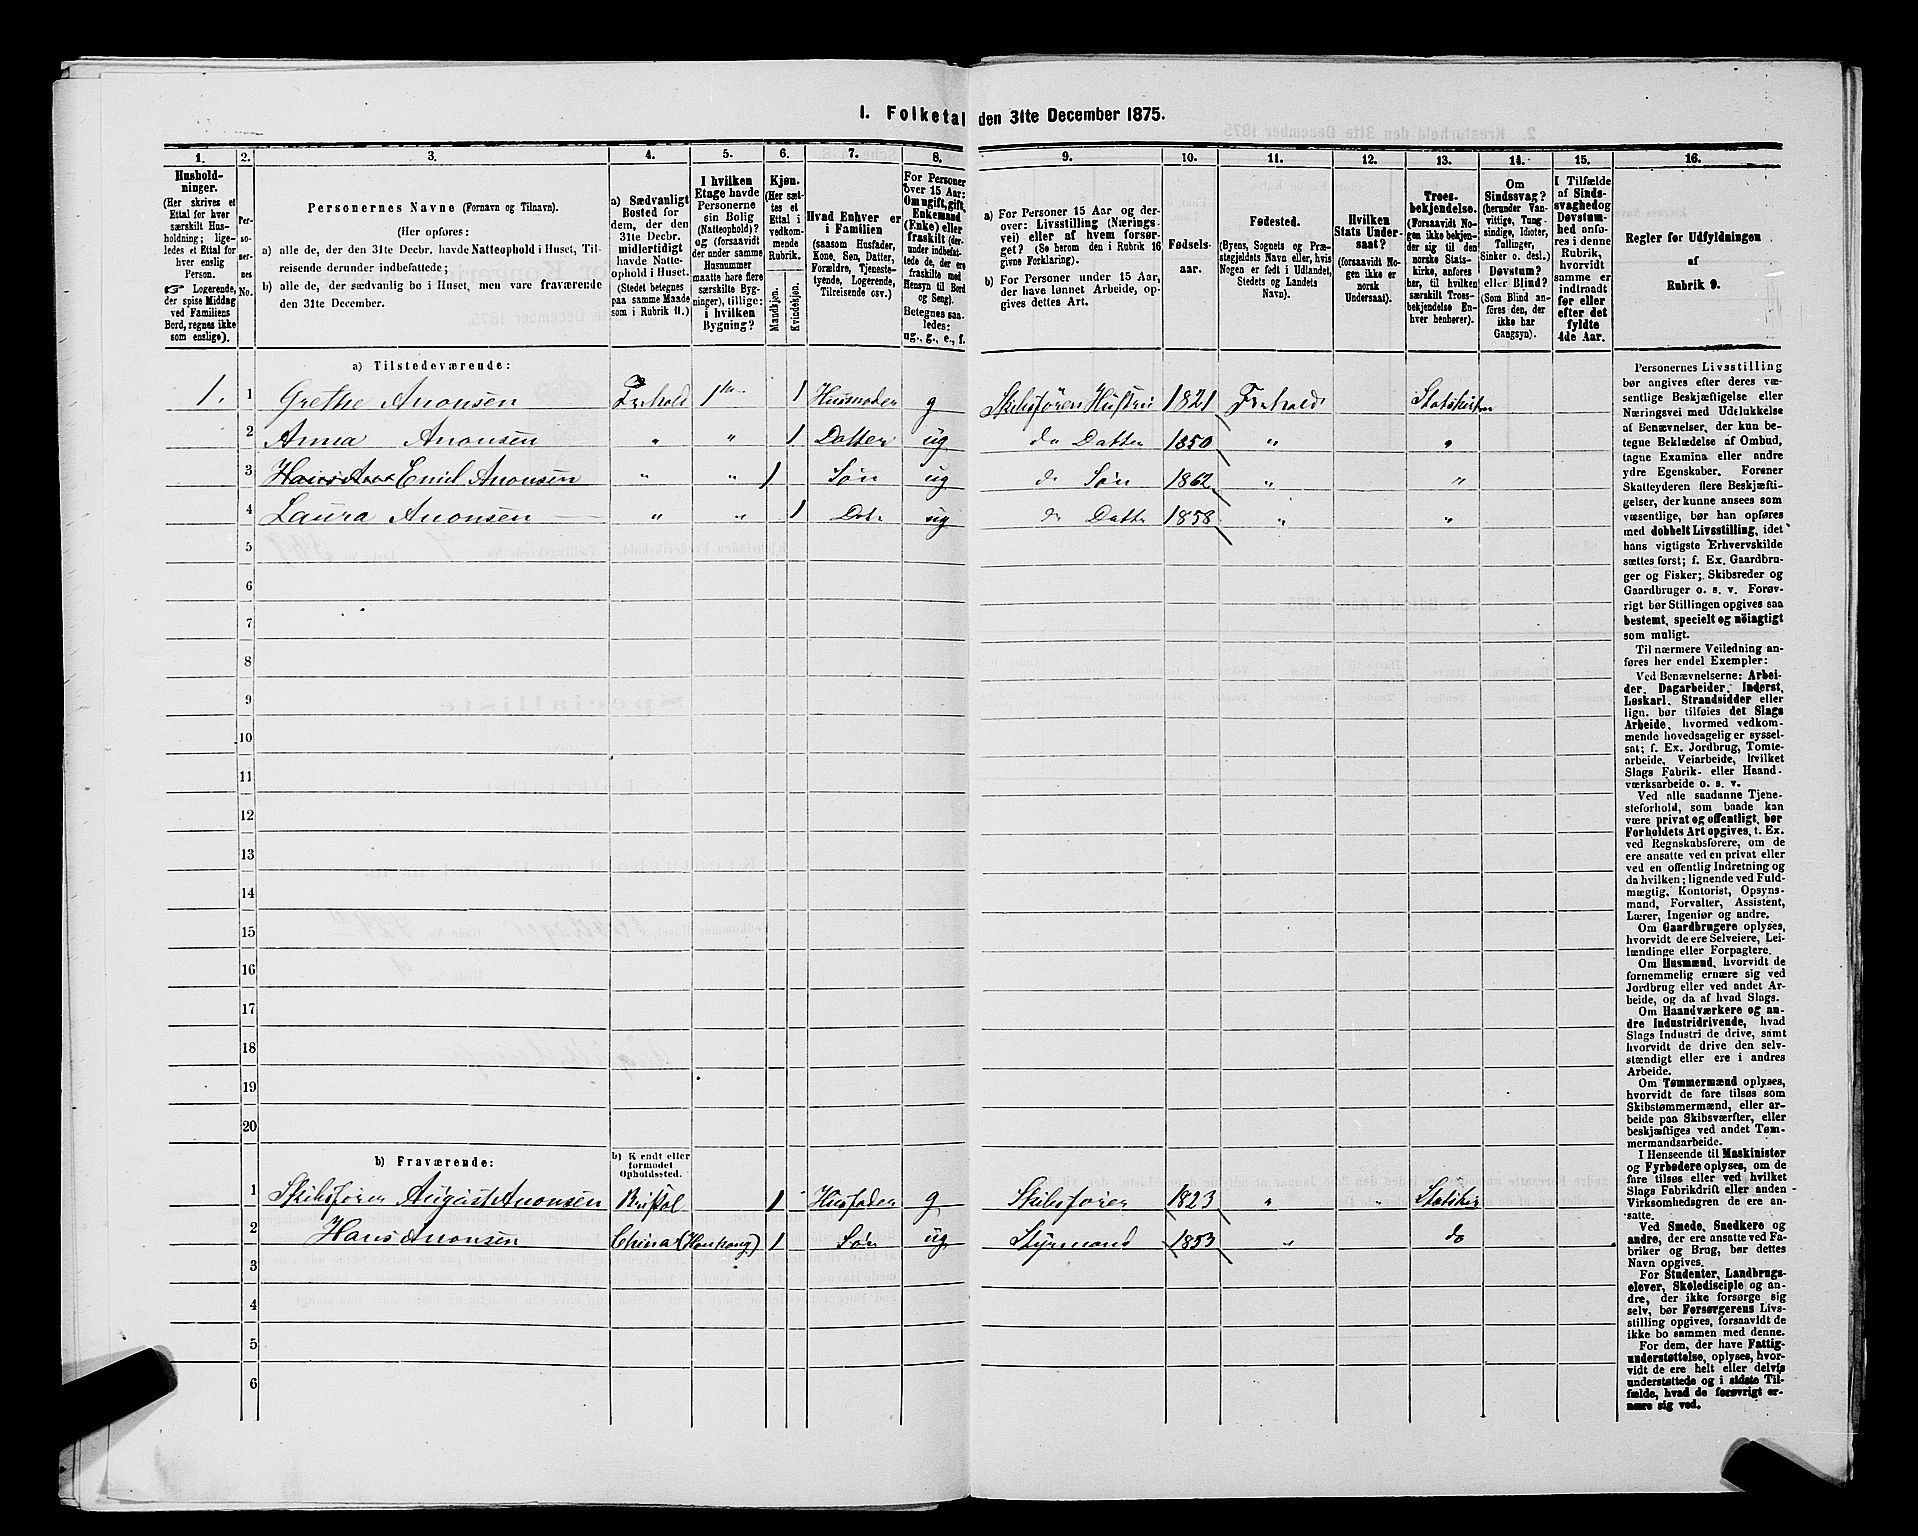 1. Folketal den 31te December 1875.
1. 2. 3. 4. 5. 6. 7. 8. 9. 10. 11. 12. 13. 14. 15. 16.
Hushold-
ninger.
(Her skrives et
Ettal for hver
særskilt Hus-
holdning; lige-
ledes et Ettal for
hver enslig
Person.
☞ Logerende,
der spise Middag
ved Familiens
Bord, regnes ikke
som enslige).
Per-
so-
ner-
nes
No.
Personernes Navne (Fornavn og Tilnavn).
(Her opføres:
a) alle de, der den 31te Decbr. havde Natteophold i Huset, Til-
reisende derunder indbefattede;
b) alle de, der sædvanlig bo i Huset, men vare fraværende
den 31te December.
a) Sædvanligt
Bosted for
dem, der den
31te Decbr.
midlertidigt
havde Natte-
ophold i Huset.
(Stedet betegnes
paa samme Maade
som i Rubrik 11.)
I hvilken
Etage havde
Personerne
sin Bolig
(Natteophold)?
og (forsaavidt
der under samme
Husnummer
maatte høre flere
særskilte Byg-
ninger), tillige:
i hvilken
Bygning?
Kjøn.
(Her sæt-
tes et
Ettal i
vedkom-
mende
Rubrik.
Mandkjøn.
Kvindekjøn.
Hvad Enhver er
i Familien
(saasom Husfader,
Kone, Søn, Datter,
Forældre, Tjeneste-
tyende, Logerende,
Tilreisende osv.)
For Personer
over 15 Aar:
Om ugift, gift,
Enkemand
(Enke) eller
fraskilt (der-
under indbefat-
tede de, der ere
fraskilte med
Hensyn til Bord
og Seng).
Betegnes saa-
ledes:
ug., g., e., f.
a) For Personer 15 Aar og der-
over: Livsstilling (Nærings-
vei) eller af hvem forsør-
get? (Se herom den i Rubrik 16
givne Forklaring).
b) For Personer under 15 Aar,
der have lønnet Arbeide, op-
gives dettes Art.
Fødsels-
aar.
Fødested.
(Byens, Sognets og Præ-
stegjeldets Navn eller, hvis
Nogen er født i Udlandet,
Stedets og Landets
Navn).
Hvilken
Stats Under-
saat?
(forsaavidt No-
gen ikke er
norsk
Undersaat).
Troes-
bekjendelse.
(Forsaavidt No-
gen ikke bekjen-
der sig til den
norske Stats-
kirke, anføres
her, til hvilken
særskilt Troes-
bekjendelse En-
hver henhører).
Om
Sindssvag?
(herunder Van-
vittige, Tung-
sindige, Idioter,
Tullinger,
Sinker o. desl.)
Døvstum?
eller Blind?
(Som Blind an-
føres den, der
ikke har
Gangsyn).
I Tilfælde
af Sinds-
svaghed og
Døvstum-
hed anfø-
res i denne
Rubrik,
hvorvidt
samme er
indtraadt
før eller
efter det
fyldte
4de Aar.
Regler for Udfyldningen
af
Rubrik 9.
a) Tilstedeværende:
1. 1 Grethe Anonsen Frhald 1ste 1 Husmoder g Skibsføren Hustru 1821 Frhald Statskirken
2 Anna Anonsen " " 1 Datter ug do Datter 1850 " "
3 Emil Anonsen " " 1 Søn ug do Søn 1862 " "
4 Laura Anonsen " " 1 Datr ug do Dattr 1858 " "
5
6
7
8
9
10
11
12
13
14
15
16
17
18
19
20
b) Fraværende:
b) Kjendt eller
formodet
Opholdssted.
1 Skibsfører August Anonsen Bristol 1 Husfader g Skibsfører 1823 " " Statskir
2 Hans Anonsen China (Honkong) 1 Søn ug Styrmand 1853 " do
3
4
5
6
Personernes Livsstilling
bør angives efter deres væ-
sentlige Beskjæftigelse eller
Næringsvei med Udelukkelse
af Benævnelser, der kun be-
tegne Beklædelse af Ombud,
tagne Examina eller andre
ydre Egenskaber. Forener
Skatteyderen flere Beskjæfti-
gelser, der kunne ansees som
væsentlige, bør han opføres
med dobbelt Livsstilling, idet
hans vigtigste Erhvervskilde
sættes først; f. Ex. Gaardbru-
ger og Fisker; Skibsreder og
Gaardbruger o. s. v. Forøv-
rigt bør Stillingen opgives saa
bestemt, specielt og nøiagtigt
som muligt.
Til nærmere Veiledning an-
føres her endel Exempler:
Ved Benævnelserne: Arbei-
der, Dagarbeider, Inderst,
Løskarl, Strandsidder eller
lign. bør tilføies det Slags
Arbeide, hvormed vedkom-
mende hovedsagelig er syssel-
sat; f. Ex. Jordbrug, Tomte-
arbeide, Veiarbeide, hvilket
Slags Fabrik- eller Haand-
værksarbeide o. s. v.
Ved alle saadanne Tjene-
steforhold, som baade kan
være privat og offentligt, bør
Forholdets Art opgives, t. Ex.
ved Regnskabsførere, om de
ere ansatte ved en privat eller
ved en offentlig Indretning og
da hvilken; lignende ved Fuld-
mægtig, Kontorist, Opsyns-
mand, Forvalter, Assistent,
Lærer, Ingeniør og andre.
Om Gaardbrugere oplyses,
hvorvidt de ere Selveiere, Lei-
lændinge eller Forpagtere.
Om Husmænd, hvorvidt de
fornemmelig ernære sig ved
Jordbrug eller ved andet Ar-
beide, og da af hvad Slags.
Om Haandværkere og an-
dre Industridrivende, hvad
Slags Industri de drive, samt
hvorvidt de drive den selv-
stændigt eller ere i andres
Arbeide.
Om Tømmermænd oplyses,
hvorvidt de fare tilsøs som
Skibstømmermænd, eller ar-
beide paa Skibsværfter, eller
beskjæftiges ved andet Tøm-
mermandsarbeide.
I Henseende til Maskinister
og Fyrbødere oplyses, om de
fare tilsøs eller ved hvilket
Slags Fabrikdrift eller anden
Virksomhedsgren de ere an-
satte.
Ved Smede, Snedkere og
andre, der ere ansatte ved Fa-
briker og Brug, bør dettes
Navn opgives.
For Studenter, Landbrugs-
elever, Skoledisciple og an-
dre, der ikke forsørge sig
selv, bør Forsørgerens Livs-
stilling opgives, forsaavidt de
ikke bo sammen med denne.
For dem, der have Fattig-
understøttelse, oplyses, hvor-
vidt de ere helt eller delvis
understøttede og i sidste Til-
fælde, hvad de forøvrigt er-
nære sig ved.